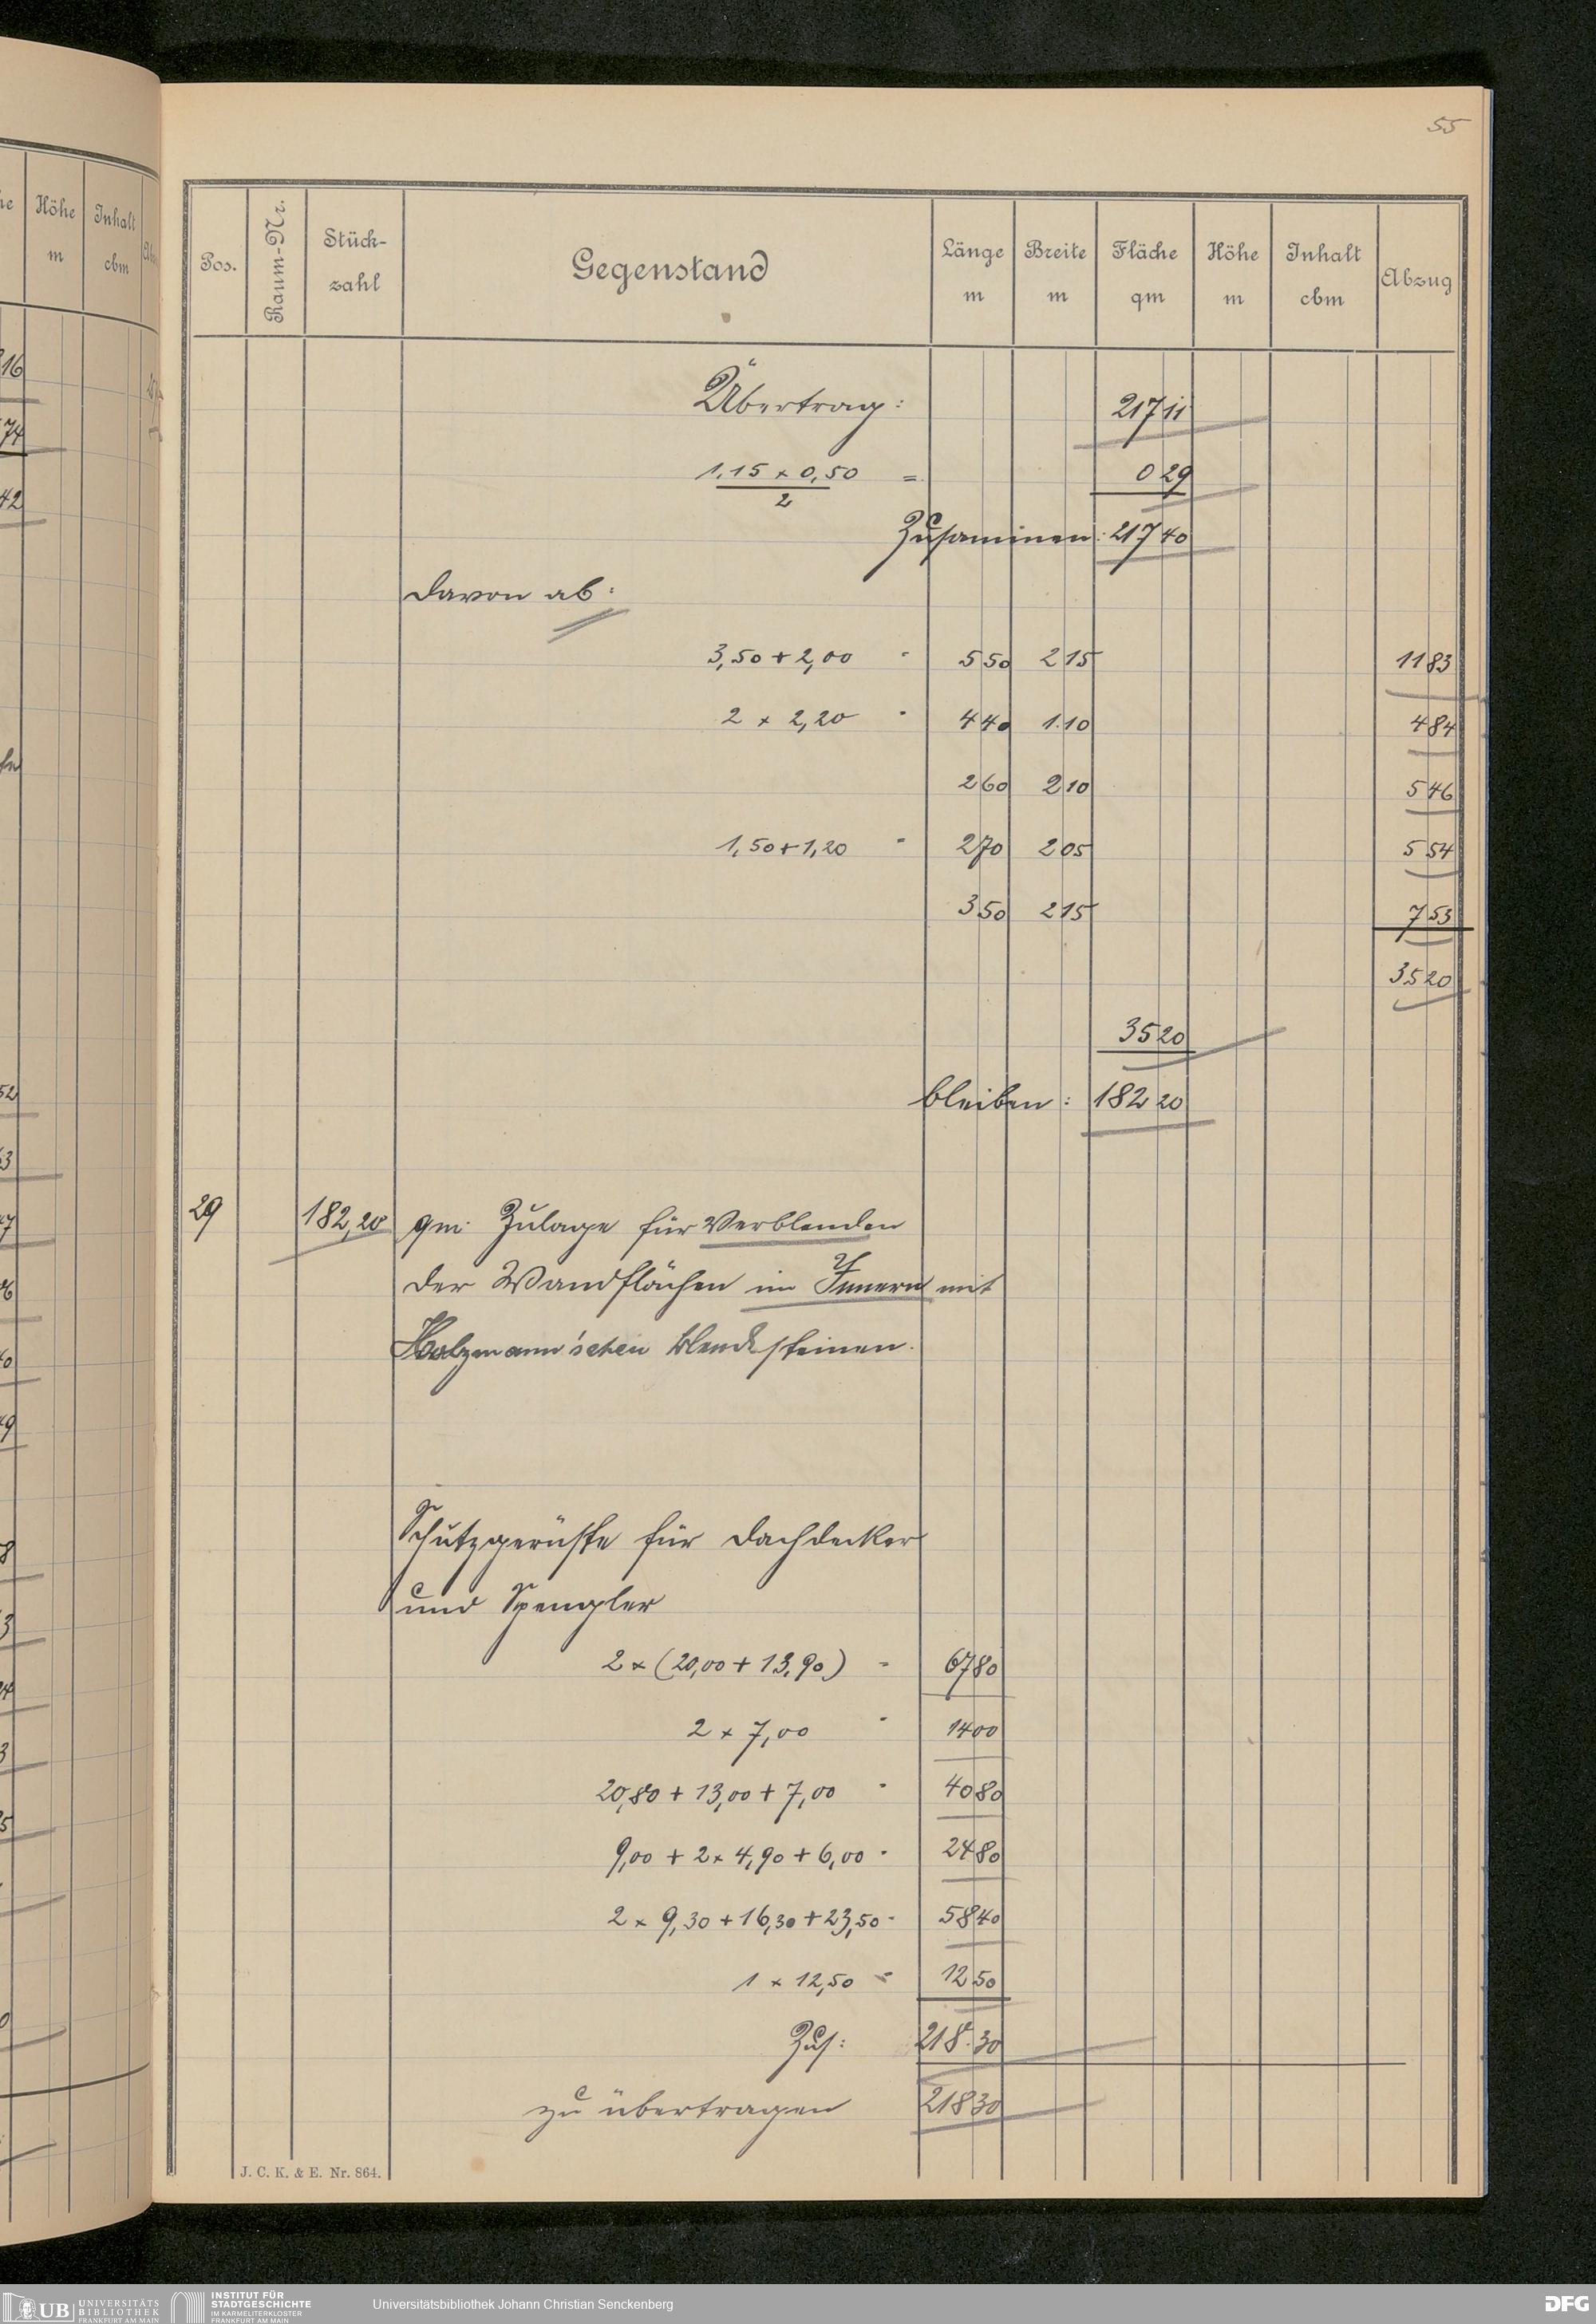 55
Pos. Raum-Nr. Stück-zahl Gegenstand Länge m Breite m Fläche qm Höhe m Inhalt cbm Abzug
Übertrag: 217 11
1,15 × 0,50 / 2 = 0 29
Zusammen: 217 40
Davon ab:
3,50 + 2,00 = 5 50 2 15 11 83
2 × 2,20 = 4 40 1.10 4 84
2 60 2 10 5 46
1,50 + 1,20 = 2 70 2 05 5 54
3 50 2 15 7 53
35 20
35 20
bleiben: 182 20
29 182,20 qm Zulage für Verblenden
der Wandflächen im Innern mit
Holzmann'schen Blendsteinen.
Schutzgerüste für Dachdecker
und Spengler
2 × (20,00 + 13,90) = 67 80
2 × 7,00 = 14 00
20,80 + 13,00 + 7,00 = 40 80
9,00 + 2 × 4,90 + 6,00 = 24 80
2 × 9,30 + 16,30 + 23,50 = 58 40
1 × 12,50 = 12 50
Zus: 218.30
zu übertragen 218 30
J. C. K. & E. Nr. 864.
he Höhe m Inhalt cbm
16
74
42
52
3
7
6
40
49
8
3
24
3
5
0
UB UNIVERSITÄTS BIBLIOTHEK FRANKFURT AM MAIN
INSTITUT FÜR STADTGESCHICHTE IM KARMELITERKLOSTER FRANKFURT AM MAIN
Universitätsbibliothek Johann Christian Senckenberg
DFG